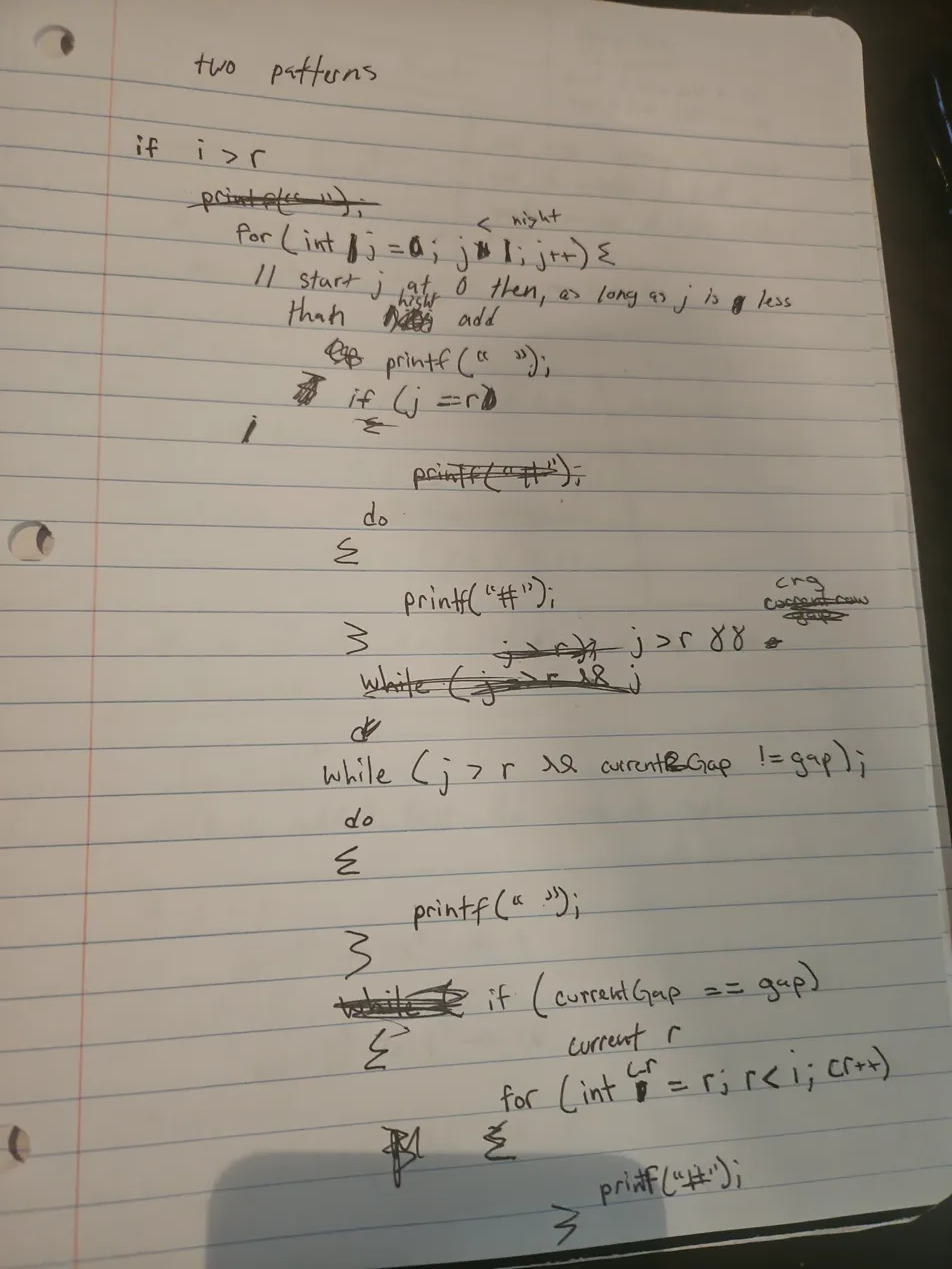 two patterns
if i > r
printf(" ");
< night
for (int j = 0; j 1; j++) {
// start j at 0 then, as long as j is less
hight
than add
printf(" ");
if (j == r)
{
printf("#");
do
{
printf("#");
crg
current row
gap
}
j > r); j > r &&
while (j > r && j
while (j > r && currentGap != gap);
do
{
printf(" ");
}
while ( if (currentGap == gap)
{ current r
cr
for (int = r; r < i; cr++)
{
printf("#");
}